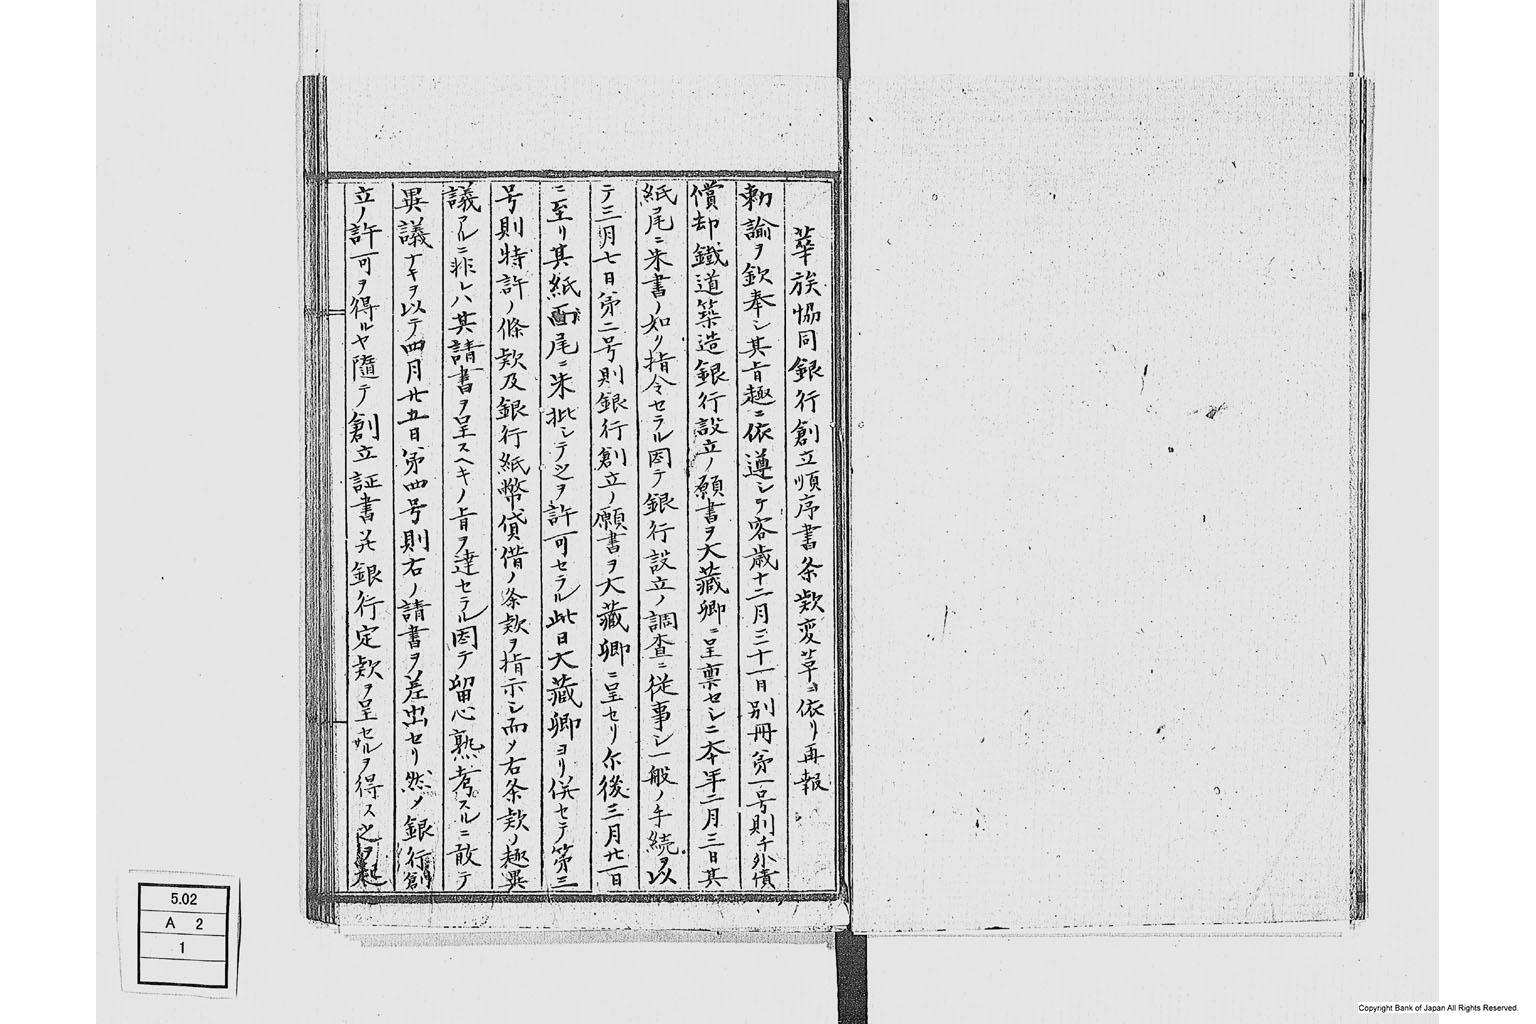 華族恊同銀行創立順序書条欵変革ヨ依リ再報
勅諭ヲ欽奉シ其旨趣ニ依遵シテ客歳十二月三十一日別冊第一号則チ外債
償却鐵道築造銀行設立ノ願書ヲ大藏卿ニ呈稟セシニ本年二月三日其
紙尾ニ朱書ノ如ク指令セラル因テ銀行設立ノ調査ニ従事シ一般ノ手続ヲ以
テ三月七日第二号則銀行創立ノ願書ヲ大藏卿ニ呈セリ尓後三月廿一日
ニ至リ其紙尾ニ朱批シテ之ヲ許可セラル此日大藏卿ヨリ併セテ第三
号則特許ノ條欵及銀行紙幣貸借ノ条欵ヲ指示シ而メ右条欵ノ趣異
議アルニ非レハ其請書ヲ呈スヘキノ旨ヲ達セラル因テ留心熟考スルニ敢テ
異議ナキヲ以テ四月廿五日第四号則右ノ請書ヲ差出セリ然メ銀行創
立ノ許可ヲ得ルヤ隨テ創立証書并銀行定欵ヲ呈セサルヲ得ス之ヲ起
5.02
A 2
1
Copyright Bank of Japan All Rights Reserved.